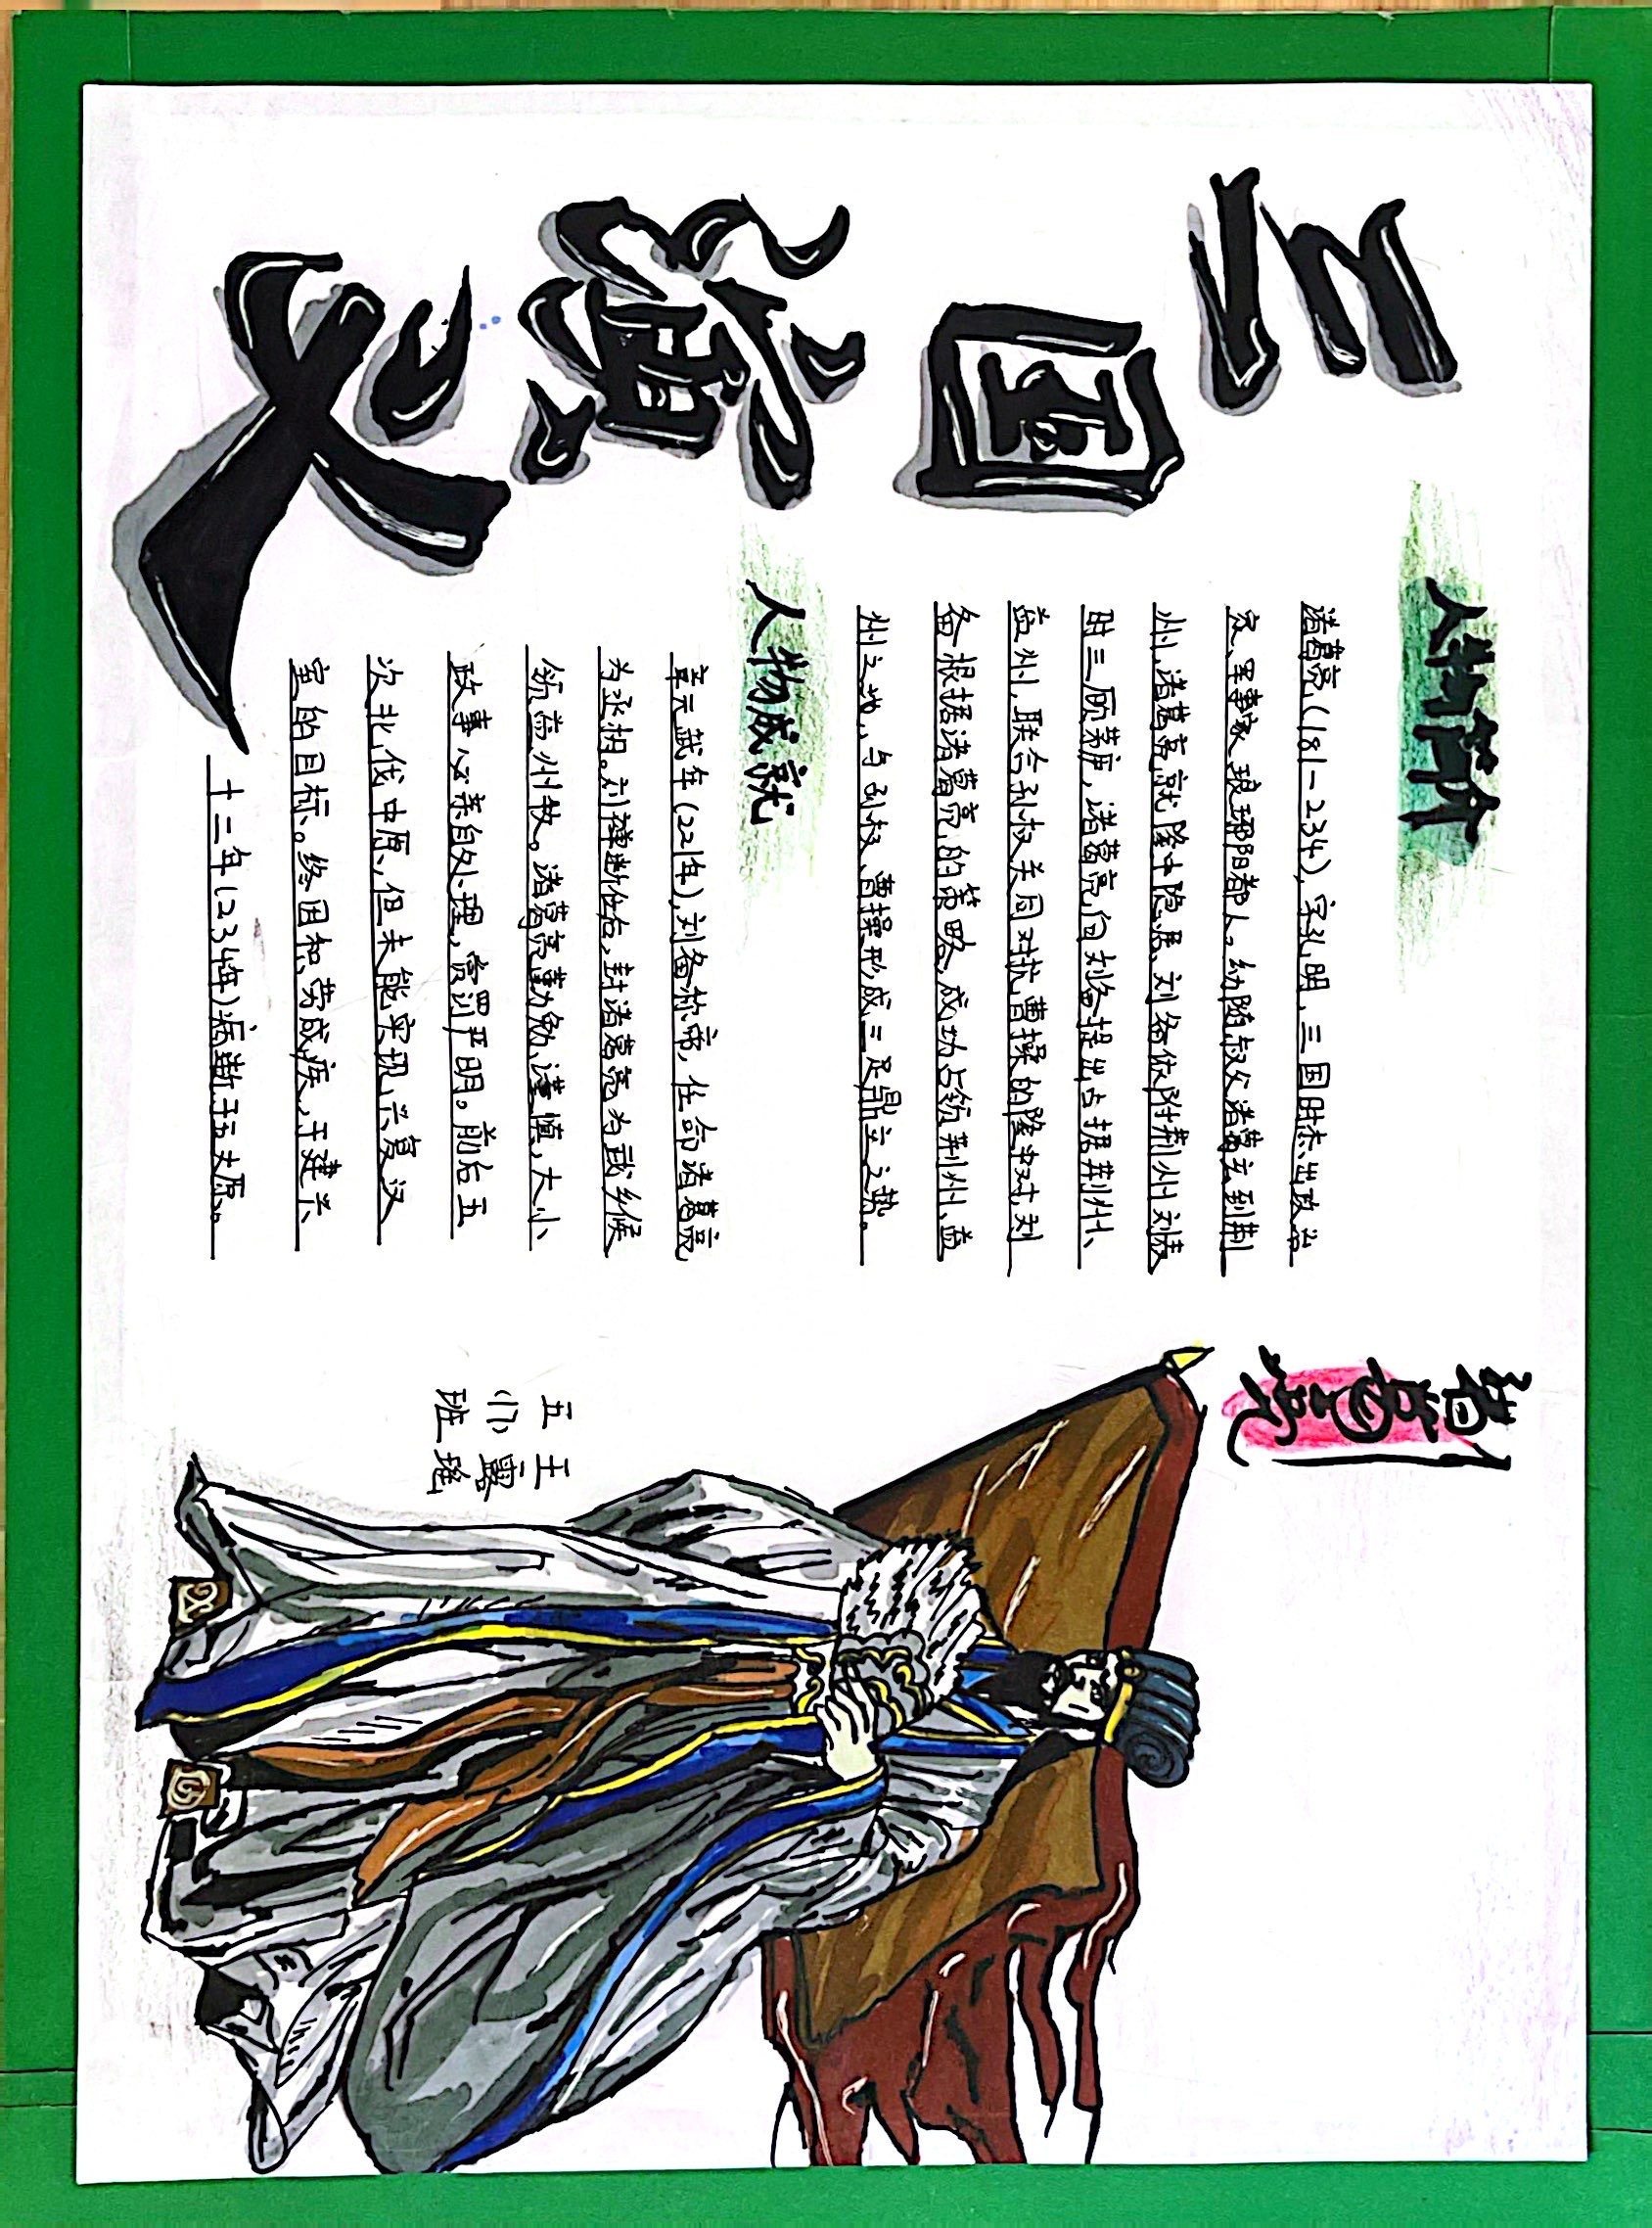 三国演义
人物简介
诸葛亮(181-234),字孔明,三国时杰出政治
家、军事家,琅琊阳都人。幼随叔父诸葛玄到荆
州,诸葛亮就隆中隐居,刘备依附荆州刘表
时三顾茅庐,诸葛亮向刘备提出占据荆州、
益州,联合孙权共同对抗曹操的隆中对,刘
备根据诸葛亮的策略,成功占领荆州、益
州之地,与孙权、曹操形成三足鼎立之势。
人物成就
章元武年(221年),刘备称帝,任命诸葛亮
为丞相。刘禅继位后,封诸葛亮为武乡候
领益州牧。诸葛亮勤勉谨慎,大小
政事必亲自处理,赏罚严明。前后五
次北伐中原,但未能实现兴复汉
室的目标。终因积劳成疾,于建兴
十二年(234年)病逝于五丈原。
诸葛亮
五(1)班
王露瑶